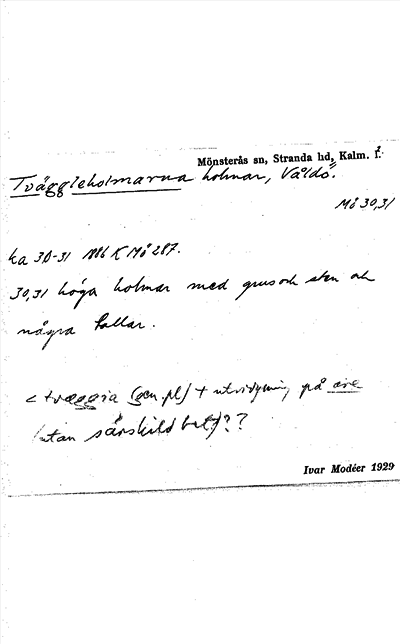 Mönsterås sn, Stranda hd, Kalm. l.
Tväggleholmarna holmar, Våldö.
Mö 30,31
ka 30-31 1886 K Mö 287.
30,31 höga holmar med grus och sten och
några tallar.
< tvæggia (gen. pl) + utvidgning på are
(utan särskild bet)??
Ivar Modéer 1929